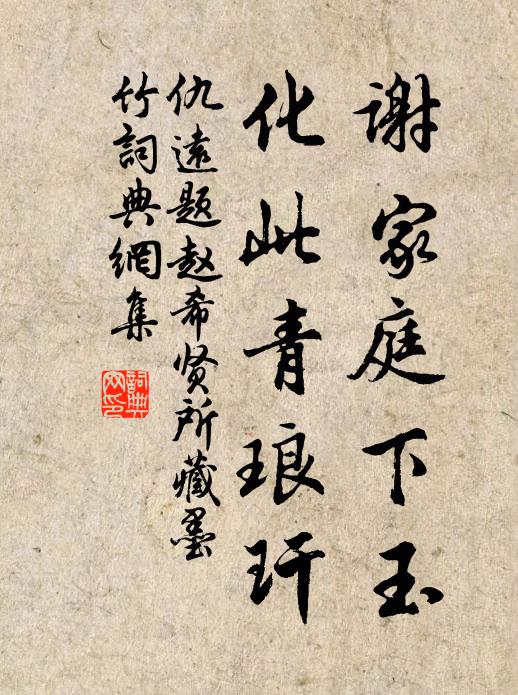 谢家庭下玉
化此青琅玕
仇遠题赵希贤所藏墨
竹詞典網集
詞典网印